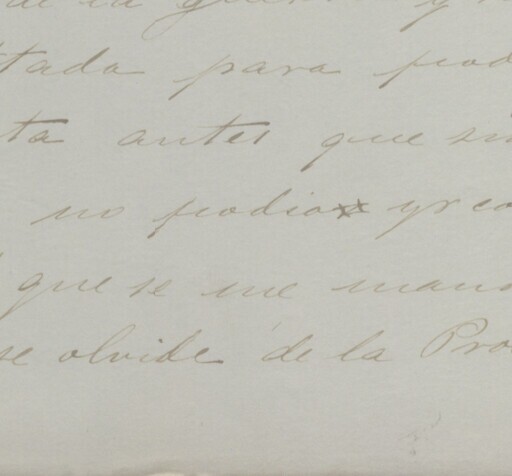 de la
tada para pod
ta antes que sin
no podia yr co
que se me man
se olvide de la Pro